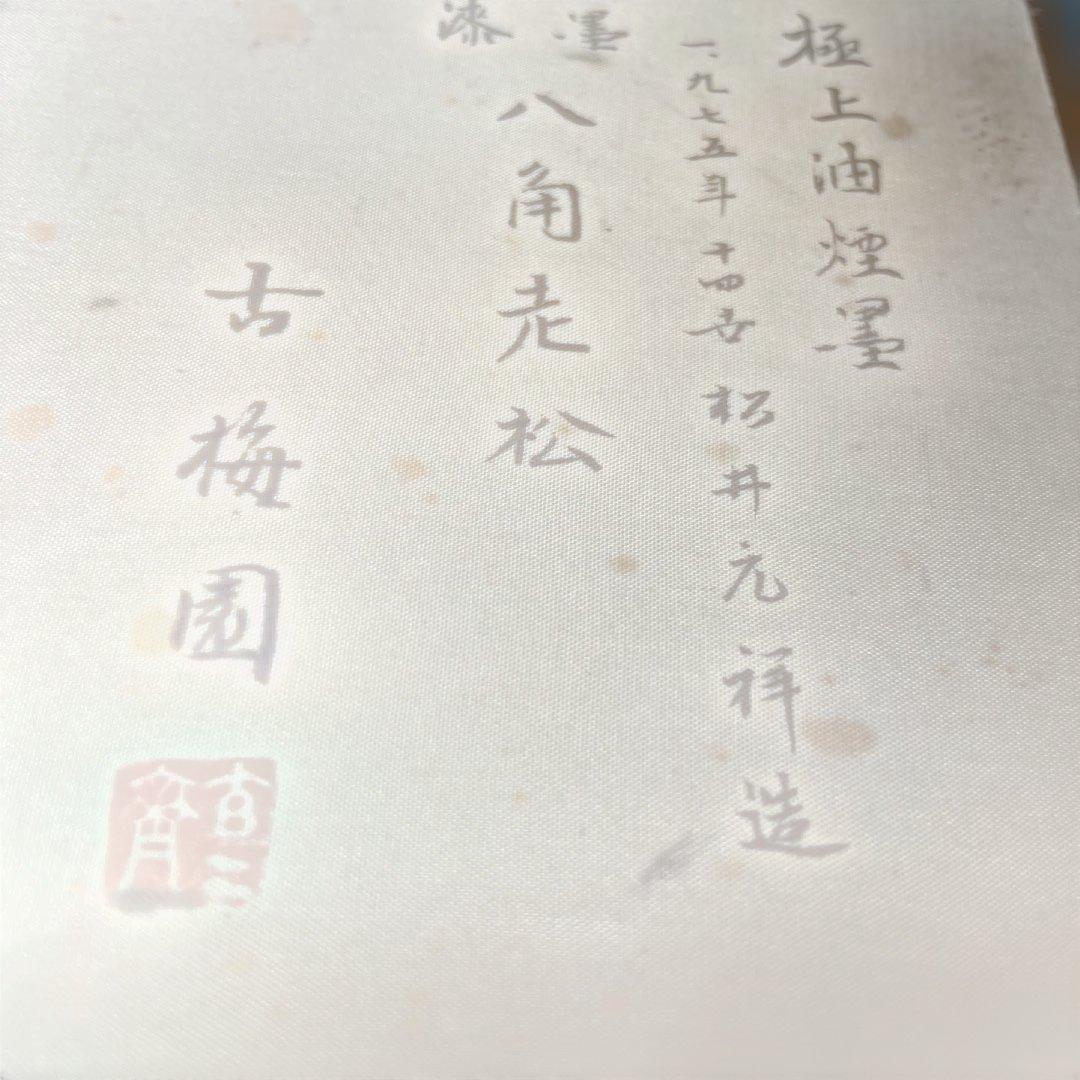 極上油煙墨
一九七五年 十四世 松井元祥造
墨
漆
八角老松
古梅園